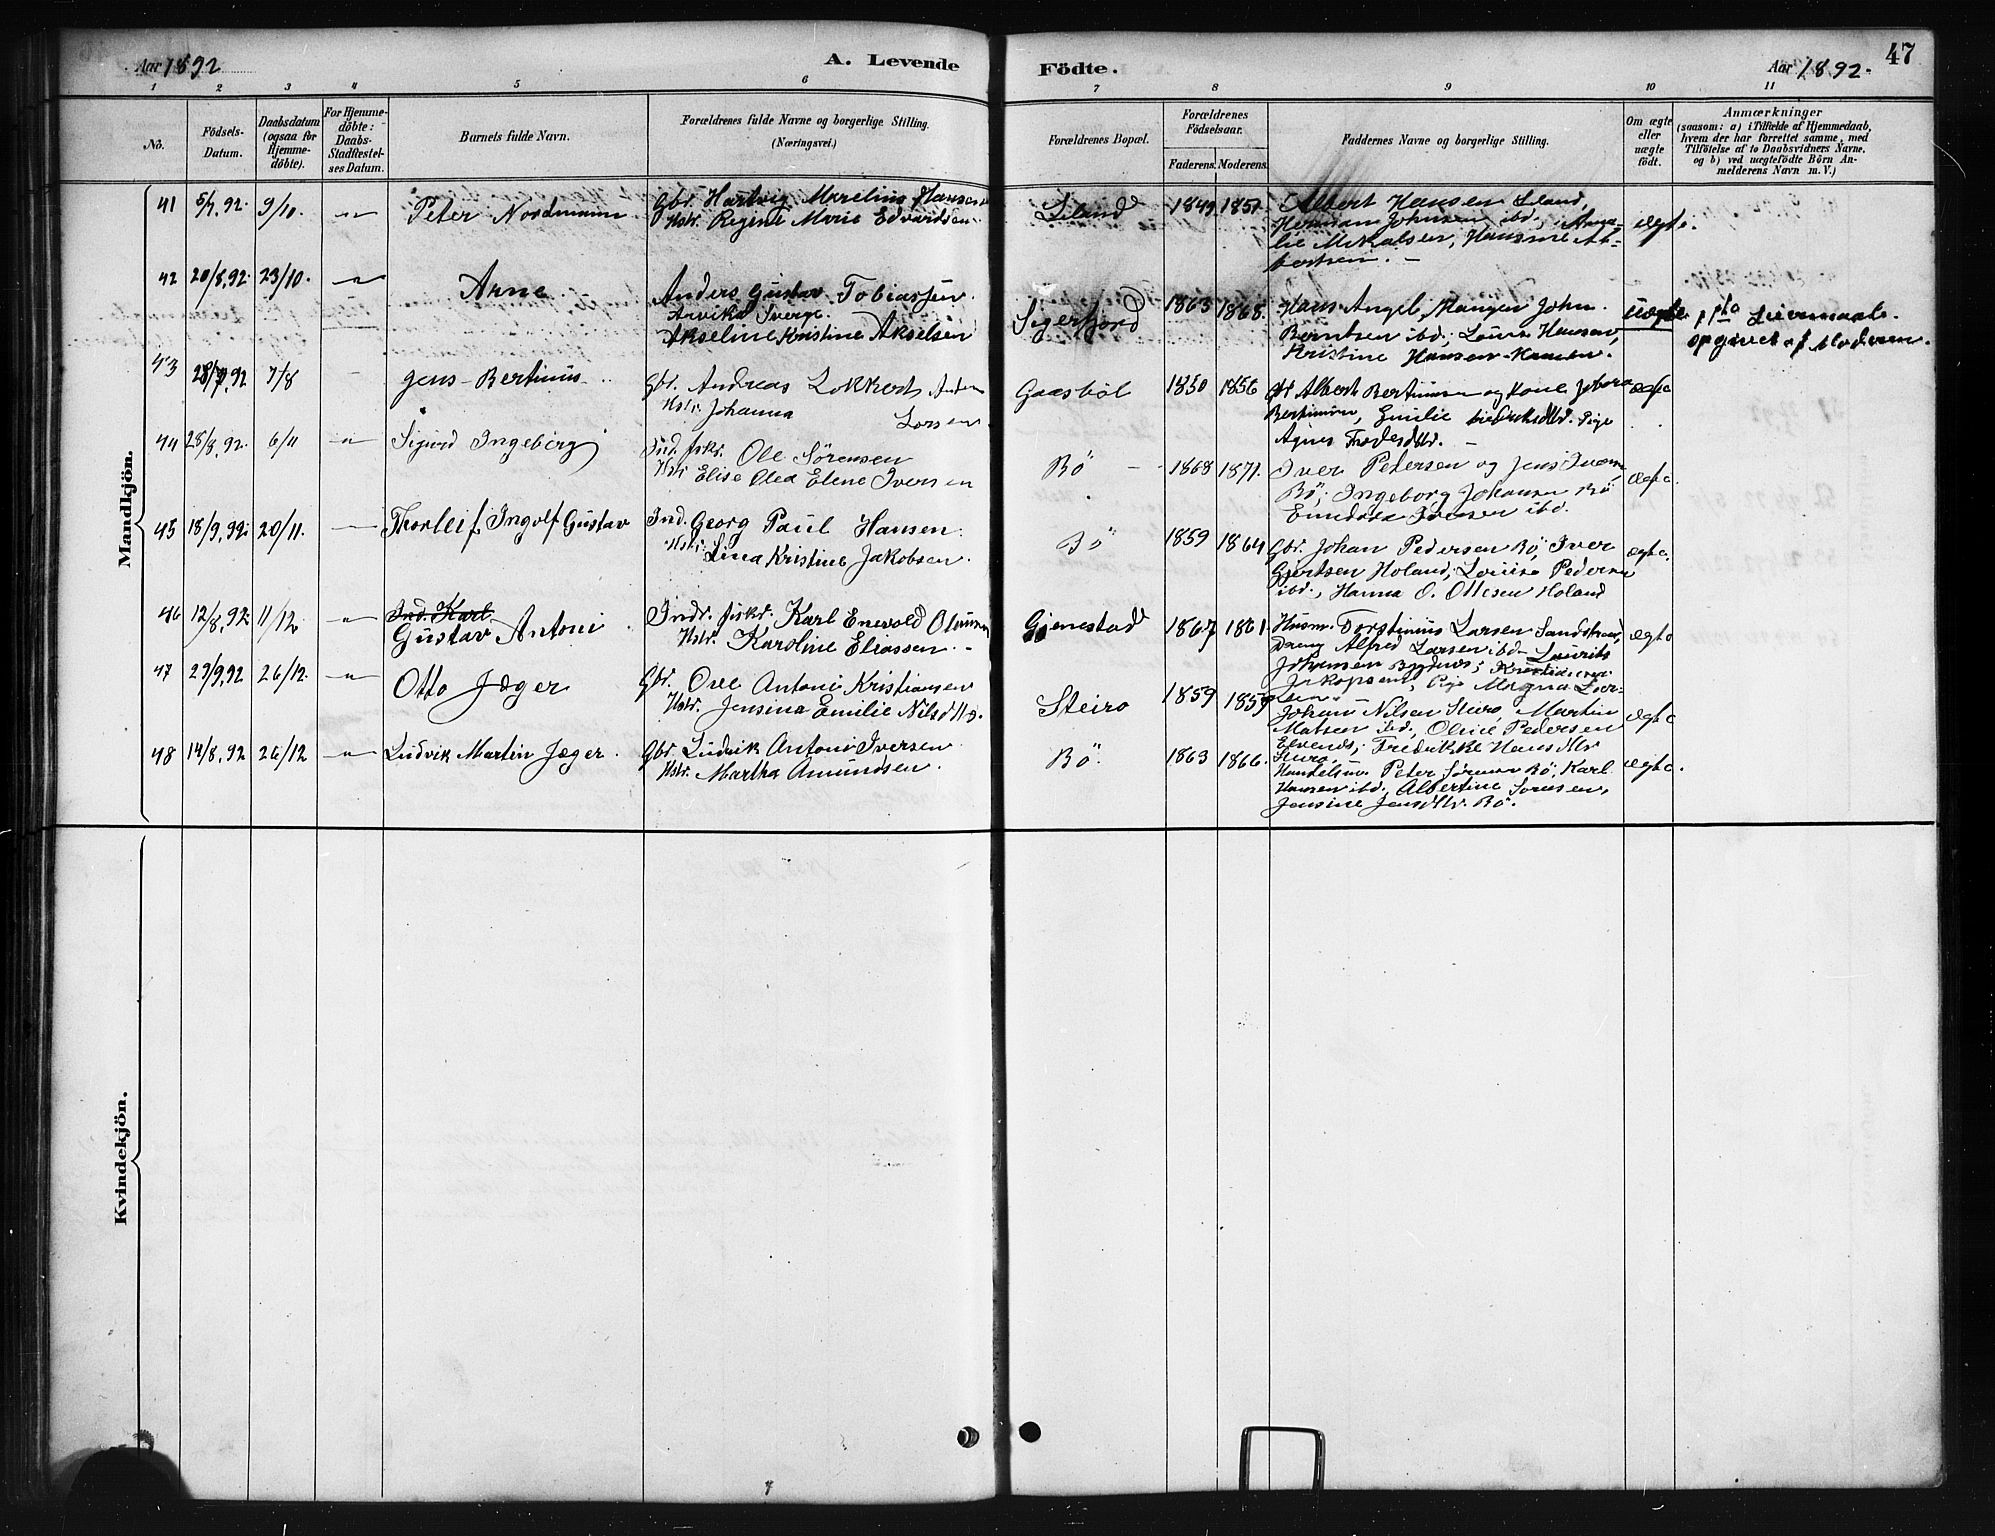 Aar 1892
A. Levende
Födte.
Aar 1892.
47
1 2 3 4 5 6 7 8 9 10 11
No.
Födsels-
Datum.
Daabsdatum
(ogsaa for
Hjemme-
döbte).
For Hjemme-
döbte:
Daabs-
Stadfestel-
ses Datum.
Barnets fulde Navn.
Forældrenes fulde Navne og borgerlige Stilling.
(Næringsvei.)
Forældrenes Bopæl.
Forældrenes
Födselsaar.
Faderens. Moderens.
Faddernes Navne og borgerlige Stilling.
Om ægte
eller
uægte
födt.
Anmærkninger
(saasom: a) i Tilfælde af Hjemmedaab,
hvem der har forrettet samme, med
Tilföielse af to Daabsvidners Navne,
og b) ved uægtefödte Börn An-
melderens Navn m. V.)
Mandkjön.
41 5/7.92. 9/10. Peter Nordmann Gbr. Hartvig Marelius Hansen
Hstr. Regine Marie Edvardsen
Liland 1849 1851 Albert Hansen Liland,
Herman Johnsen ibd., Ama-
lie Mikalsen, Hansine Al-
bertsen. ægte.
42 20/8.92. 23/10. Arne Anders Gustav Tobiassen.
Arvika Sverge.
Akseline Kristine Akselsen
Sigerfjord 1863 1868. Hans Angel, John
Berntsen ibd., Louise Hansen,
Kristine Hansen uægte Leiermaal.
opgivet af Moderen.
43 28/7.92 7/8 Jens Bertinus Gbr. Andreas Lokkert
Hstr. Johanna Larsen
Gaasböl 1850 1856 Gbr Albert Bertinussen og Kone
Bertinussen, Emilie Pige
Agnes ægte
44 28/8.92. 6/11 Sigurd Ingeberg Ind. fskr. Ole Sörensen
Hstr. Elise Olea Elene Iversen
Bö 1868 1871. Iver Petersen og Jens
Bö, Ingeborg Johansen Bö
Iversen ibd. ægte.
45 18/9.92. 20/11. Thorleif Ingolf Gustav Ind. Georg Paul Hansen.
Hstr. Lina Kristine Jakobsen.
Bö 1859 1864 Gbr. Johan Pedersen Bö, Iver
Gjertsen Holand, Louise Pedersen
ibd., Hanna O. Ottesen Holand ægte.
46 12/8.92. 11/12 Ind. Karl
Gustav Antoni Indr. fiskr. Karl Enevold
Hstr. Karoline Eliassen.
Gjenestad 1867 1861. Husm. Torstinius Larsen Sandstrand,
Dreng Alfred Larsen ibd. Laurits
Johansen Bygdnes,
Jakopsen, Pige Magna Lar-
sen ægte
47 27/9.92 26/12. Otto Jæger Gbr. Ove Antoni Kristiansen
Hstr. Jensina Emilie Nilsdtr.
Steiro 1859 1859 Johan Nilsen Steiro, Martin
Matsen ibd., Oline Pedersen
Fredrikke Hansdtr
Steiro. ægte
48 14/8.92 26/12 Ludvik Martin Jæger. Gbr. Ludvik Antoni Iversen.
Hstr. Martha Amundsen.
Bö. 1863 1866. Handelsm. Peter Sörensen Bö, Karl
Hansen ibd., Albertine Sörensen,
Jensine Jensdtr. Bö. ægte.
Kvindekjön.